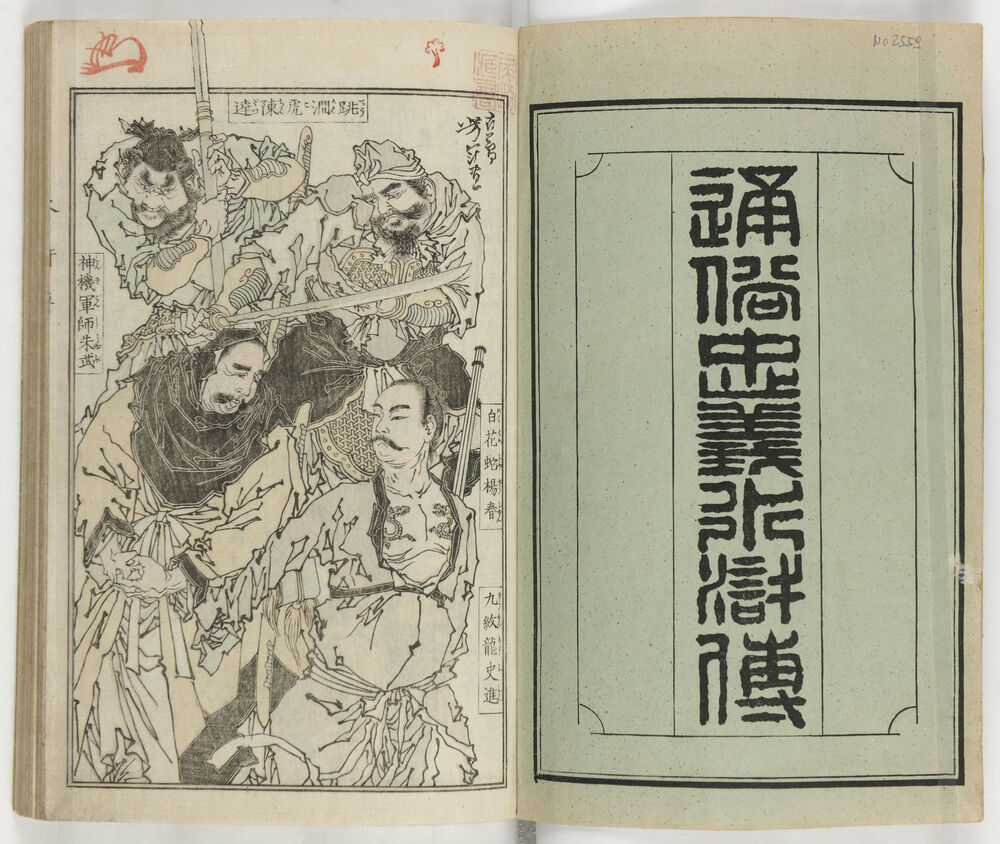 No 2559
通俗忠義水滸傳
跳澗虎陳達
神機軍師朱武
白花蛇楊春
九紋龍史進